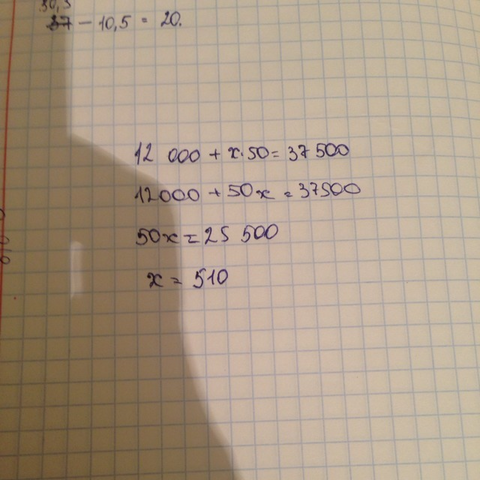 30,5
37 - 10,5 = 20.
12 000 + x·50 = 37500
12000 + 50x = 37500
50x = 25 500
x = 510